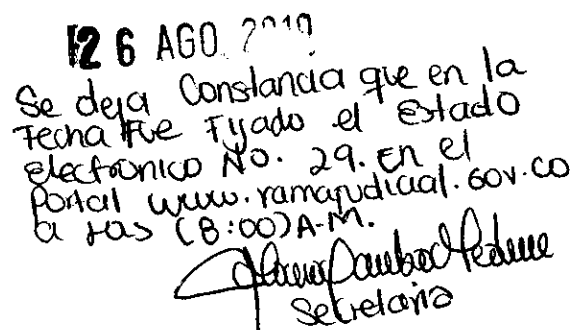 26 AGO. 2019
Se deja Constancia que en la
Fecha Fue Fijado el Estado
electronico No. 29. en el
Portal www.ramajudicial.gov.co
a las (8:00) A-M.
Secretaria